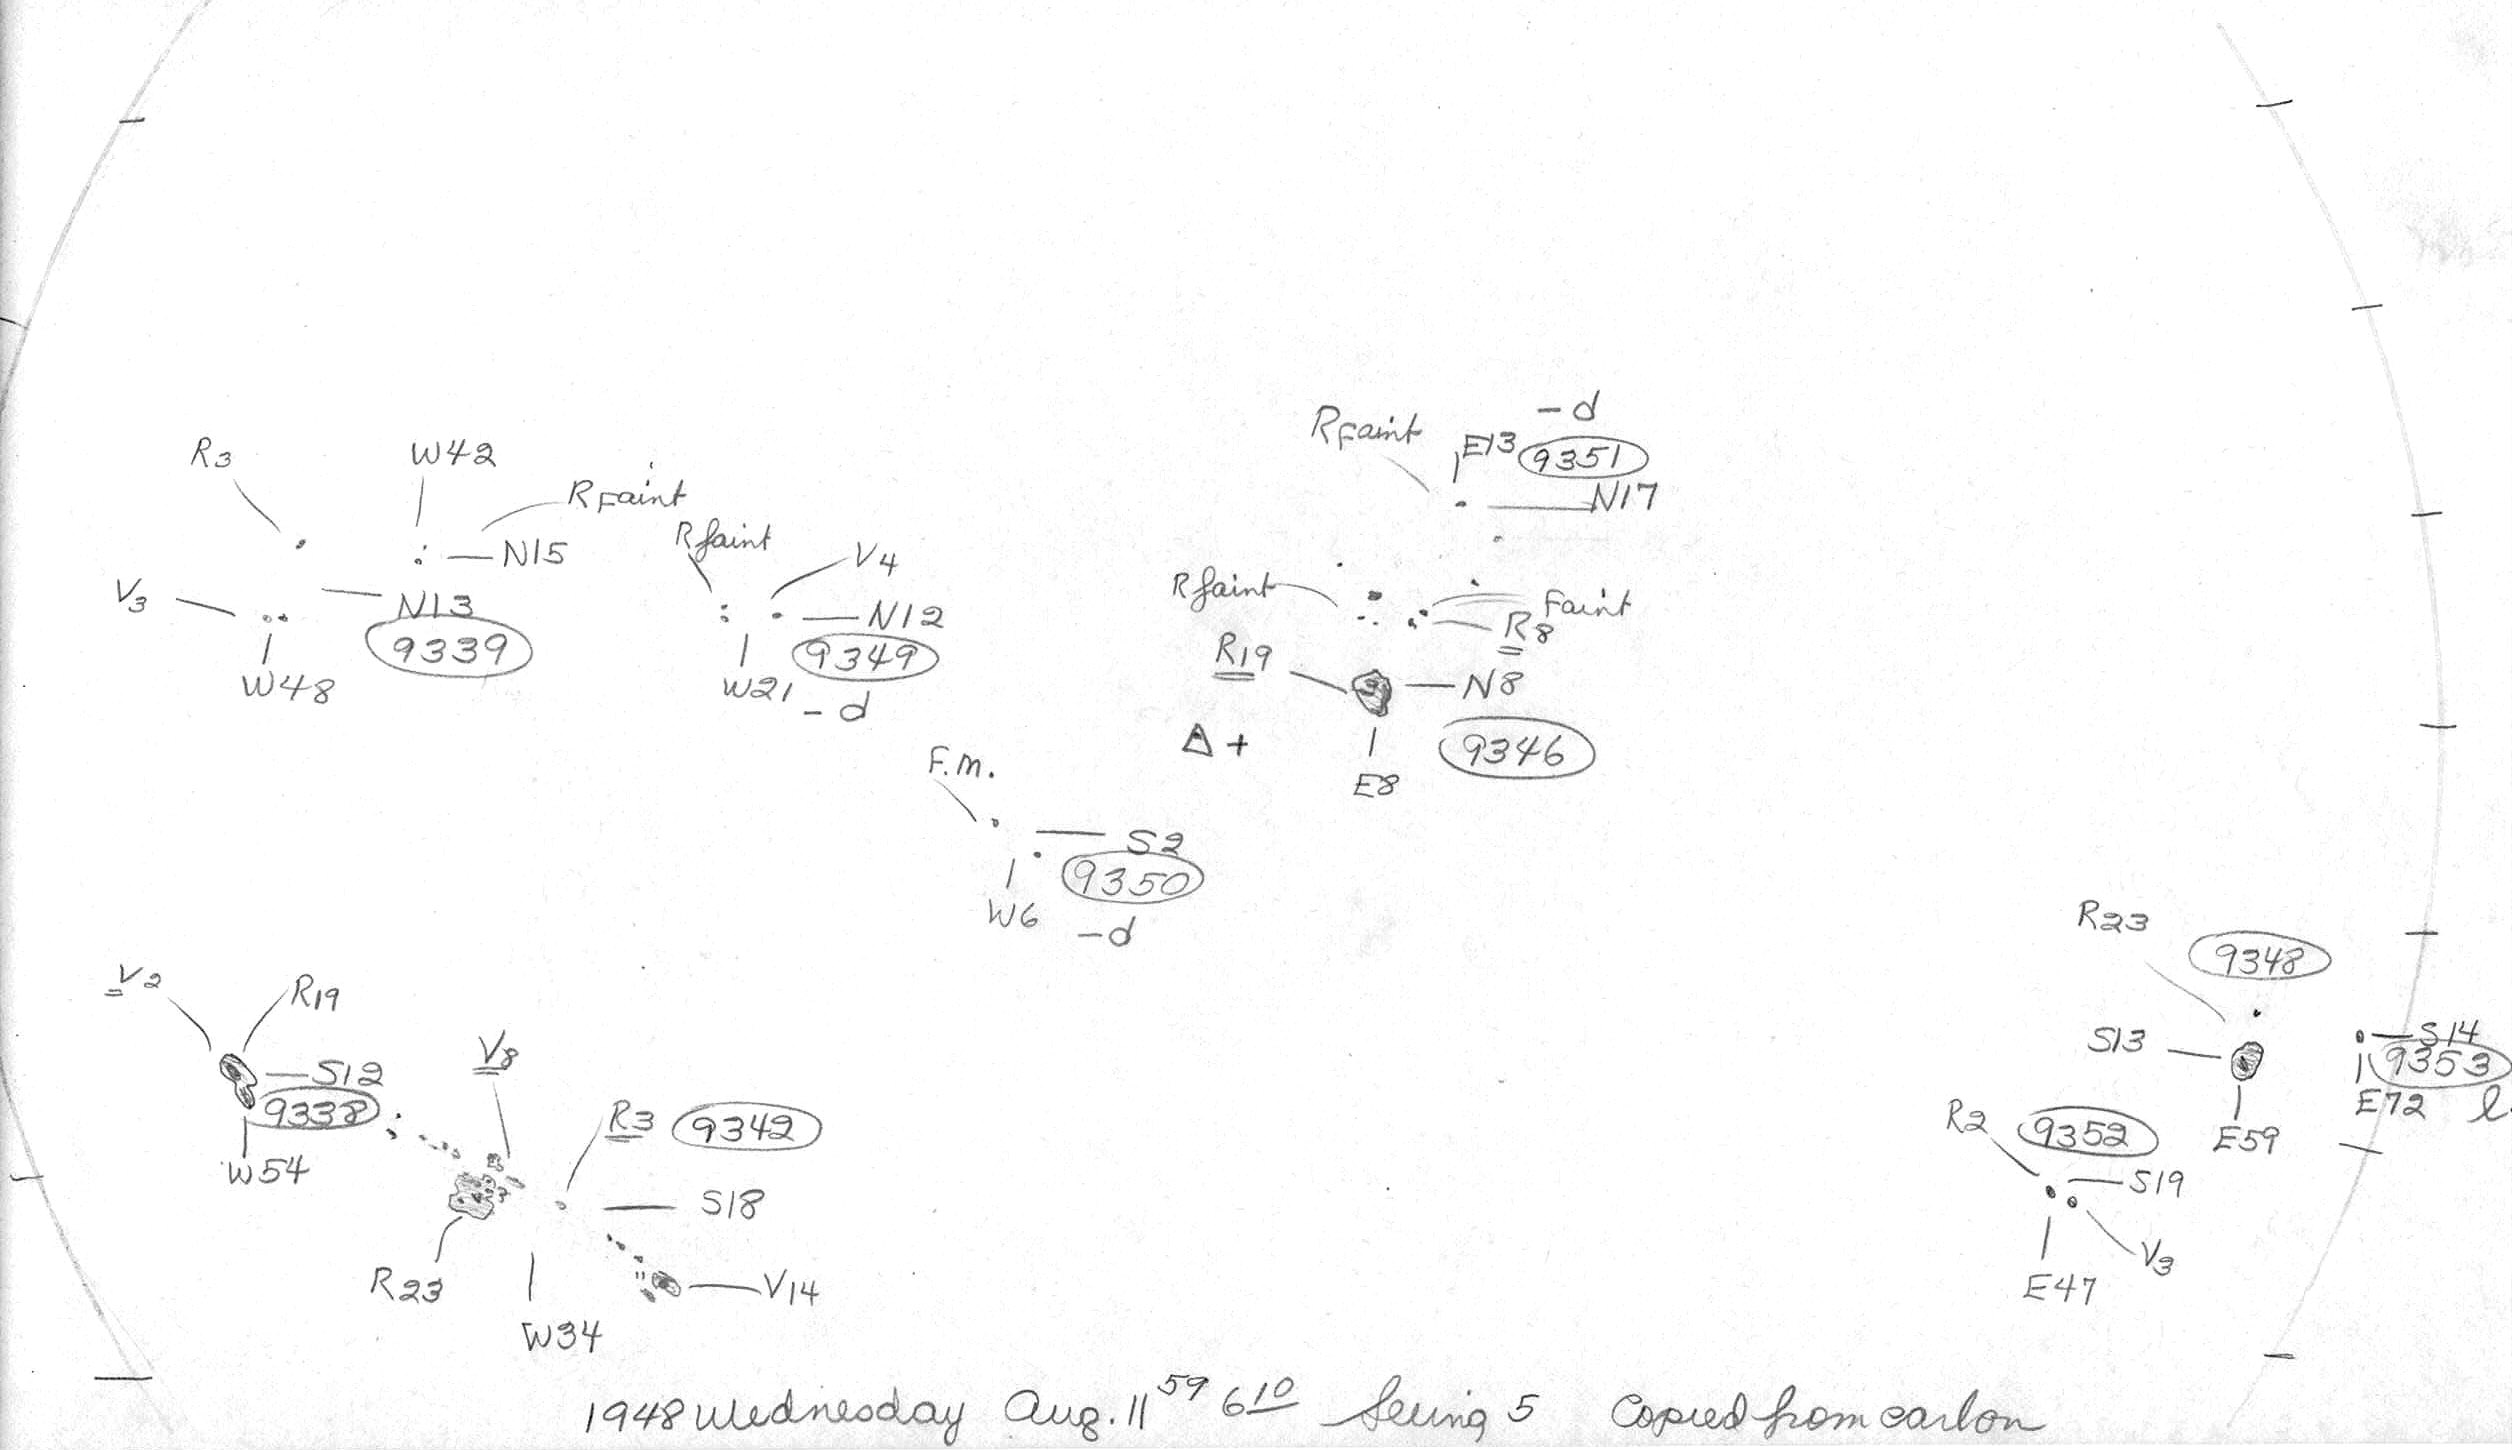 -d
R Faint
E13
9351
N17
R3
W42
R Faint
N15
R faint
V4
V3
N13
9339
W48
N12
9349
W21
-d
R faint
Faint
R8
R19
N8
Δ +
9346
E8
F.M.
S2
9350
W6
-d
R23
9348
V2
R19
S12
9338
W54
V8
R3
9342
S18
R23
V14
W34
S13
S14
9353
E72
E59
R2
9352
S19
V3
E47
1948 Wednesday Aug. 11 59 6 10 Seeing 5 Copied from carbon